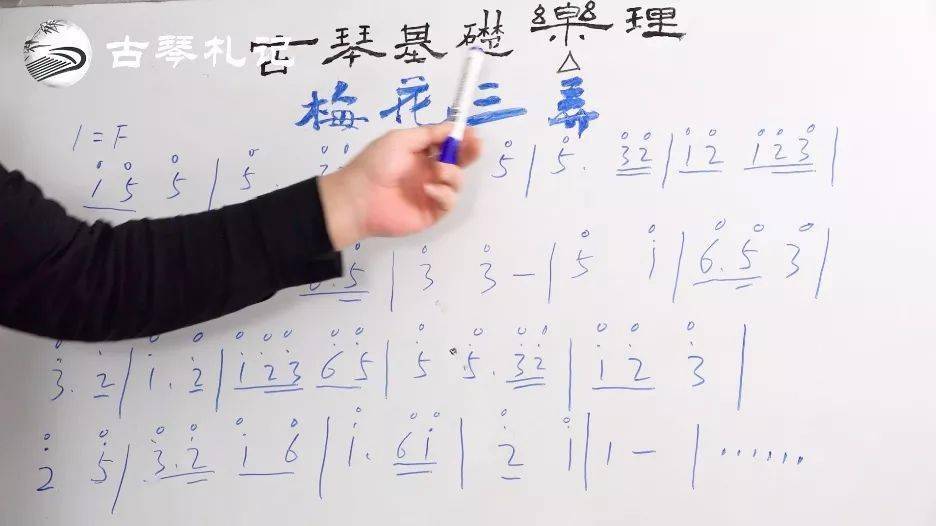 古琴札记
古琴基礎樂理
梅花三弄
1=F
1 5 5 | 5 . 5 | 5 . 3 2 | 1 2 1 2 3 |
6 . 5 | 3 3 — | 5 i | 6 . 5 3 |
3 . 2 | 1 . 2 | 1 2 3 6 5 | 5 5 . 3 2 | 1 2 3 |
2 5 | 3 . 2 1 6 | 1 . 6 1 | 2 i | 1 — | ……